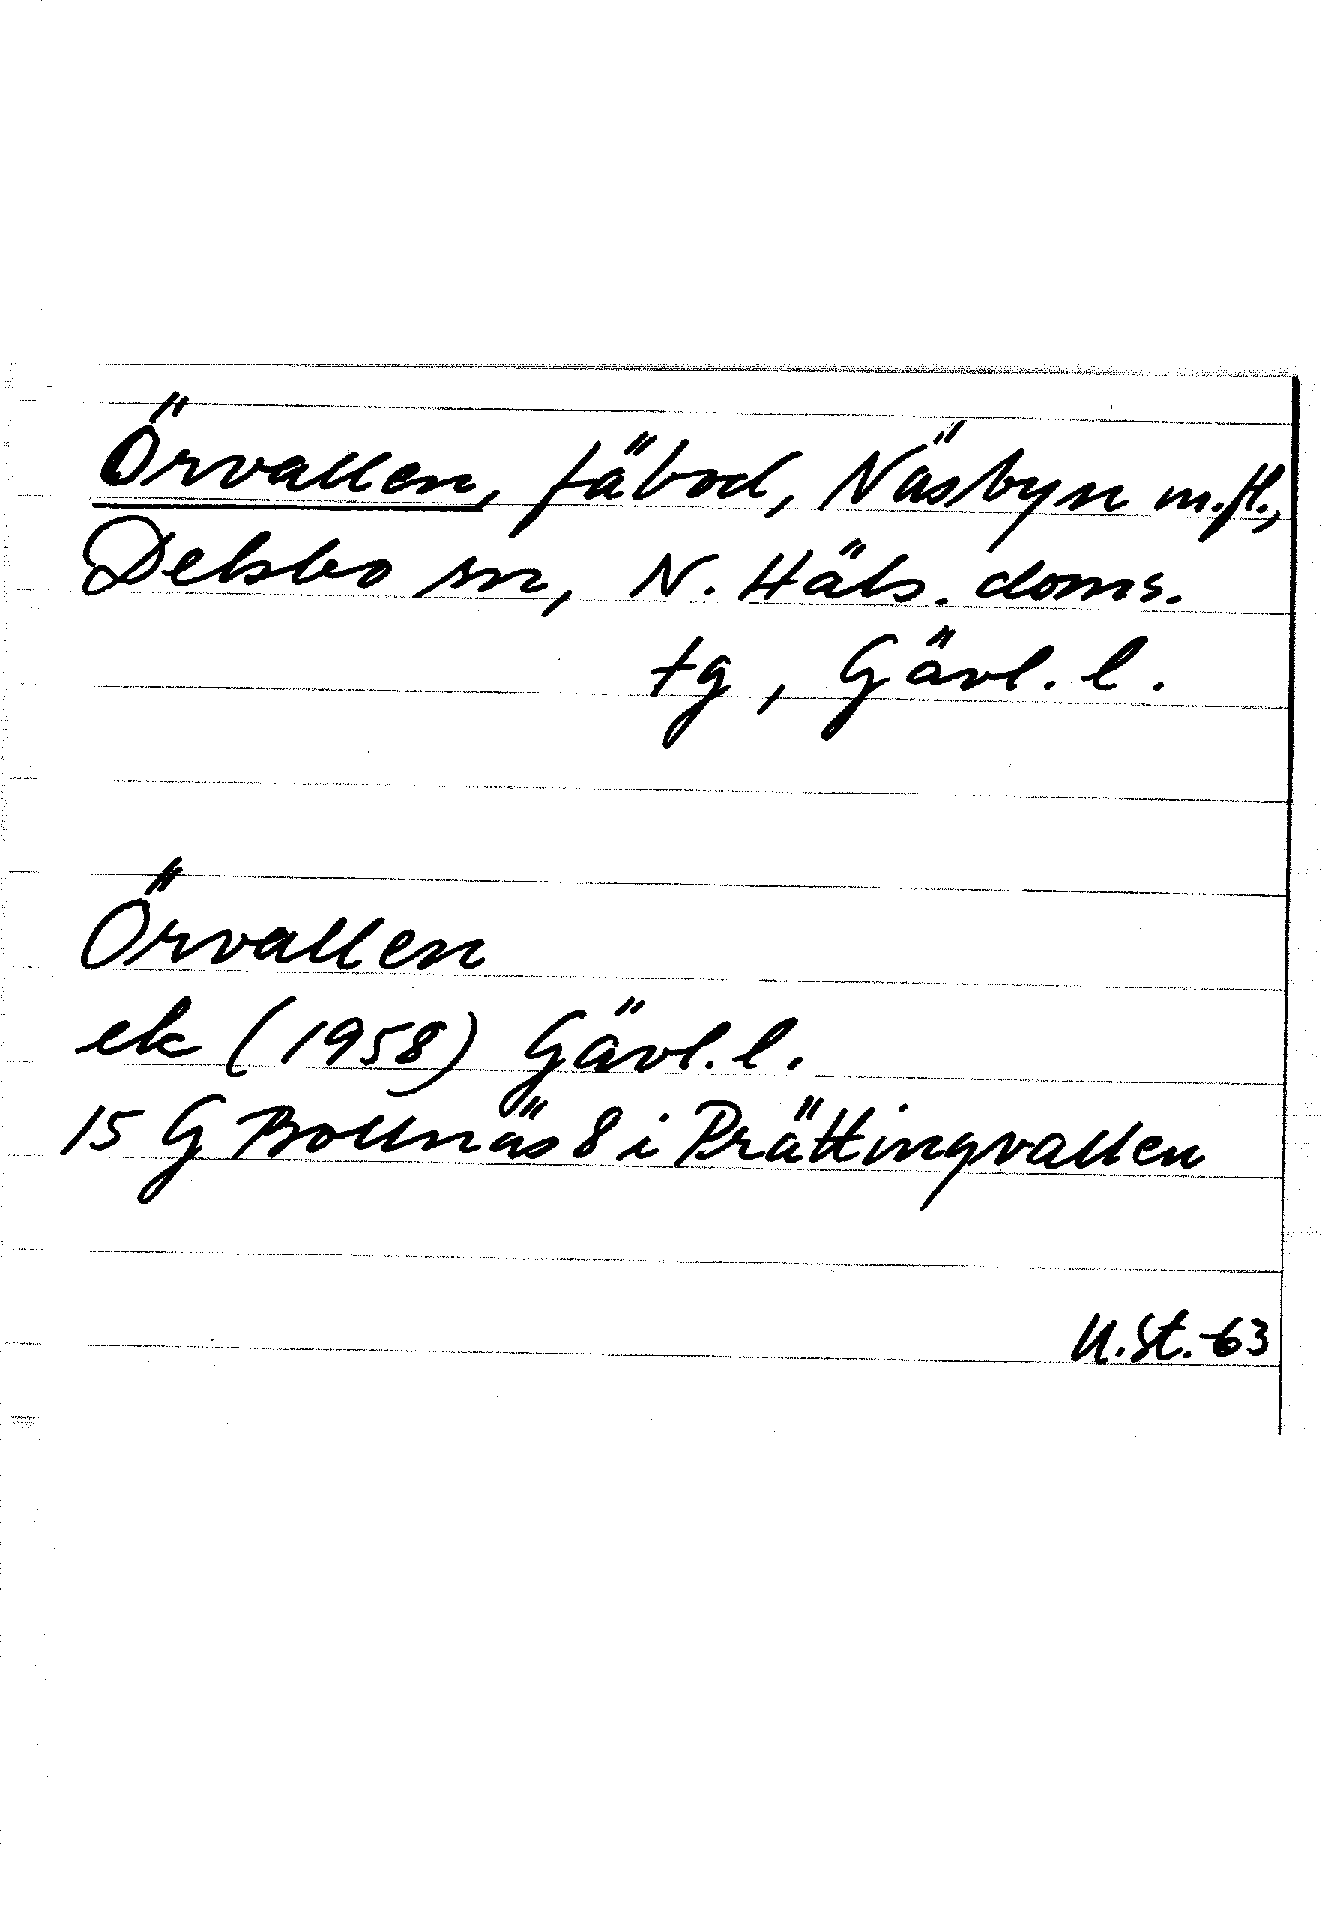 Örvallen, fäbod, Näsbyn m.fl.,
Delsbo sn, N. Häls. doms.
tg, Gävl. l.
Örvallen
ek (1958) Gävl. l.
15 G Bollnäs 8 i Prättingvallen
U.St.-63